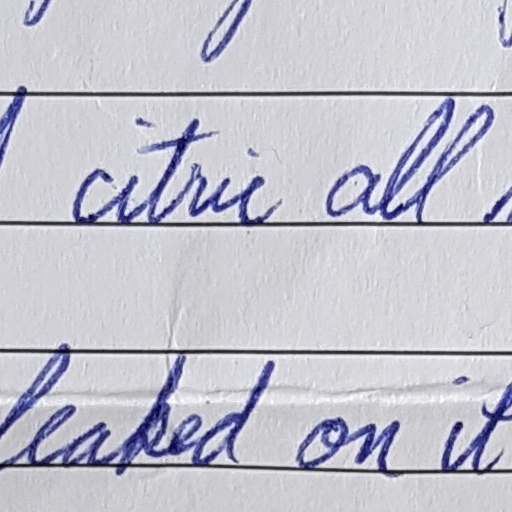 citric all
leaked on it